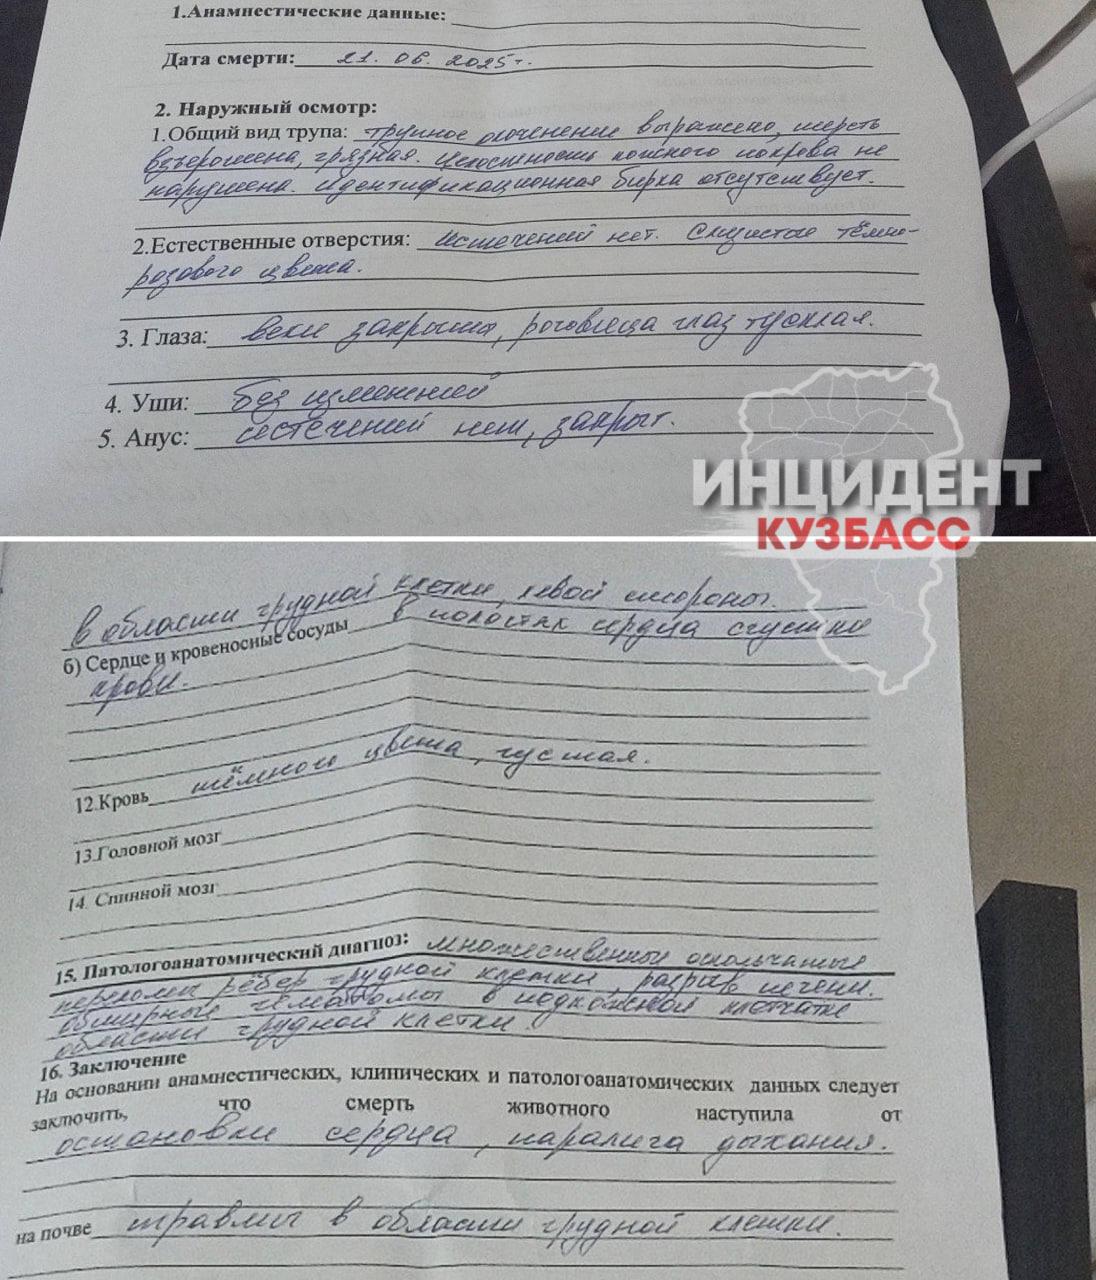 1.Анамнестические данные:
Дата смерти: 21. 06. 2025г.
2. Наружный осмотр:
1.Общий вид трупа: трупное окоченение выражено, шерсть
взъерошена, грязная. Целостность кожного покрова не
нарушена. Идентификационная бирка отсутствует.
2.Естественные отверстия: Истечений нет. Слизистые тёмно-
розового цвета.
3. Глаза: веки закрыты, роговица глаз тусклая.
4. Уши: без изменений
5. Анус: истечений нет, закрыт.
ИНЦИДЕНТ
КУЗБАСС
в области грудной клетки, левой стороны.
б) Сердце и кровеносные сосуды в полостях сердца сгустки
крови.
12.Кровь тёмного цвета, густая.
13.Головной мозг
14. Спинной мозг
15. Патологоанатомический диагноз: множественные оскольчатые
переломы рёбер грудной клетки, разрыв печени.
обширные гематомы в подкожной клетчатке
области грудной клетки.
16. Заключение
На основании анамнестических, клинических и патологоанатомических данных следует
заключить, что смерть животного наступила от
остановки сердца, паралича дыхания.
на почве травмы в области грудной клетки.